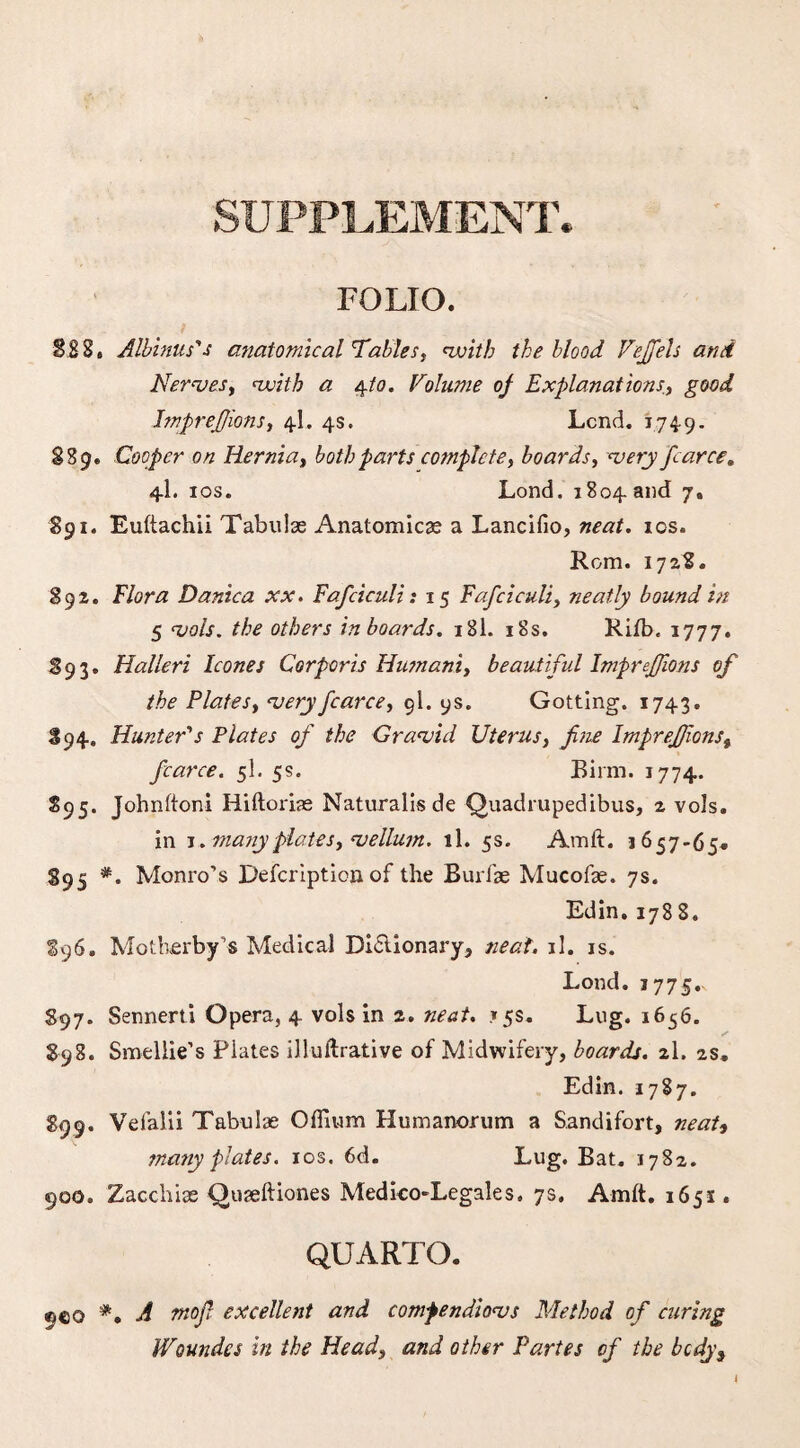 SUPPLEMENT.
FOLIO.
888. Albinus's anatomical Tables, with the blood Veſſels and
Nerves, with a 4to. Volume of Explanations, good
Impreſſions, 4l. 4s. Lond. 1749.
889. Cooper on Hernia, both parts complete, boards, very ſcarce.
4l. 10s. Lond. 1804 and 7.
891. Euſtachii Tabulæ Anatomicæ a Lanciſio, neat. 10s.
Rom. 1728.
892. Flora Danica xx. Faſciculi: 15 Faſciculi, neatly bound in
5 vols. the others in boards. 18l. 18s. Hifb. 1777.
893. Halleri Icones Corporis Humani, beautiful Impreſſions of
the Plates, very ſcarce, 9l. 9s. Gotting. 1743.
894. Hunter's Plates of the Gravid Uterus, fine Impreſſions,
ſcarce. 5l. 5s. Birm. 1774.
895. Johnſtoni Hiſtoriæ Naturalis de Quadrupedibus, 2 vols.
in 1. many plates, vellum. 1l. 5s. Amſt. 1657-65.
895 *. Monro's Deſcription of the Burſæ Mucoſæ. 7s.
Edin. 1788.
896. Motherby's Medical Dictionary, neat. 1l. 1s.
Lond. 1775.
897. Sennerti Opera, 4 vols in 2. neat. 15s. Lug. 1656.
898. Smellie's Plates illuſtrative of Midwifery, boards. 2l. 2s.
Edin. 1787.
899. Veſalii Tabulæ Oſſium Humanorum a Sandifort, neat,
many plates. 10s. 6d. Lug. Bat. 1782.
900. Zacchiæ Quæſtiones Medico-Legales. 7s. Amſt. 1651.
QUARTO.
900 *. A moſt excellent and compendiovs Method of curing
Woundes in the Head, and other Partes of the body,